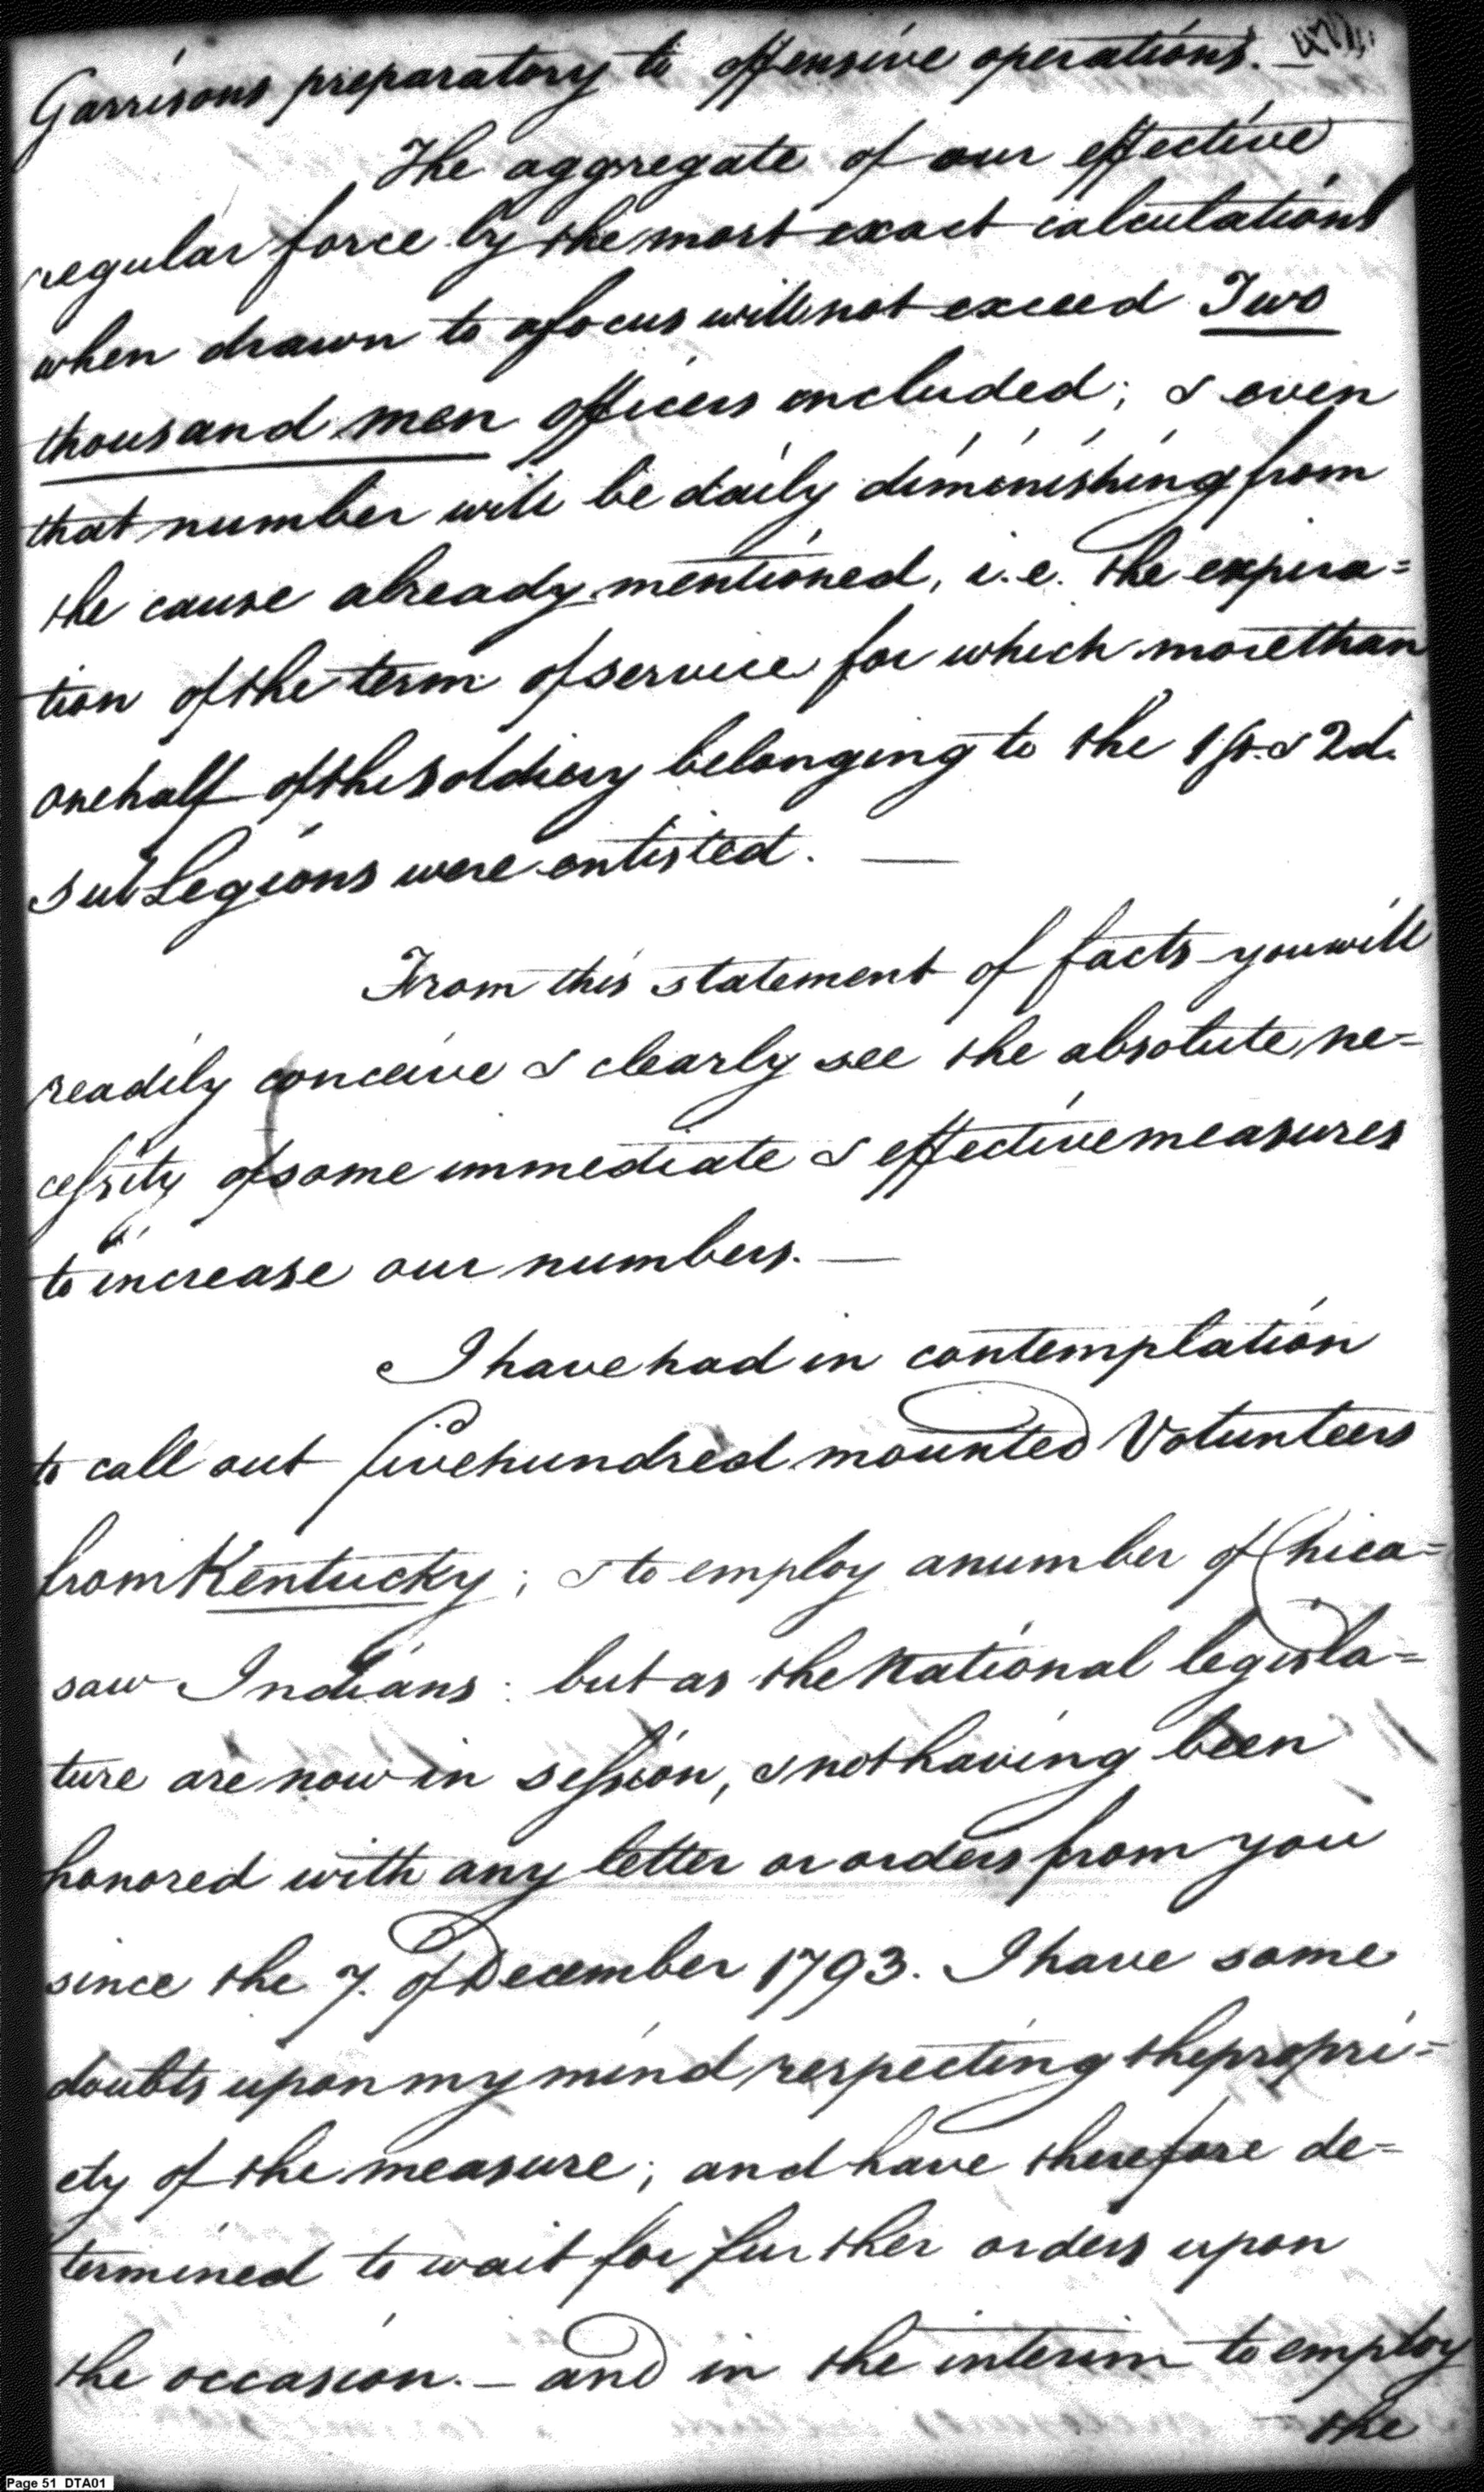 Garrisons preparatory to offensive operations. —
The aggregate of our effective
regular force by the most exact calculations
when drawn to a focus will not exceed Two
thousand men officers included; & even
that number will be daily diminishing from
the cause already mentioned, i.e. the expira=
tion of the term of service for which more than
one half of the soldiery belonging to the 1st. & 2d.
sub Legions were enlisted. —
From this statement of facts you will
readily conceive & clearly see the absolute ne=
cessity of some immediate & effective measures
to increase our numbers. —
I have had in contemplation
to call out five hundred mounted Volunteers
from Kentucky; & to employ a number of Chica=
saw Indians: but as the National legisla=
ture are now in session, & not having been
honored with any letter or orders from you
since the 7. of December 1793. I have some
doubts upon my mind respecting the propri=
ety of the measure; and have therefore de=
termined to wait for further orders upon
the occasion. — and in the interim to employ
the
Page 51 DTA01